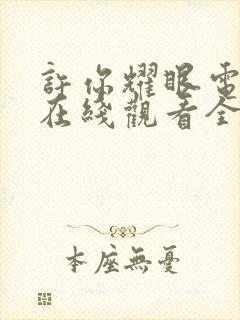 許你耀眼電
在綫觀看全
本座無憂